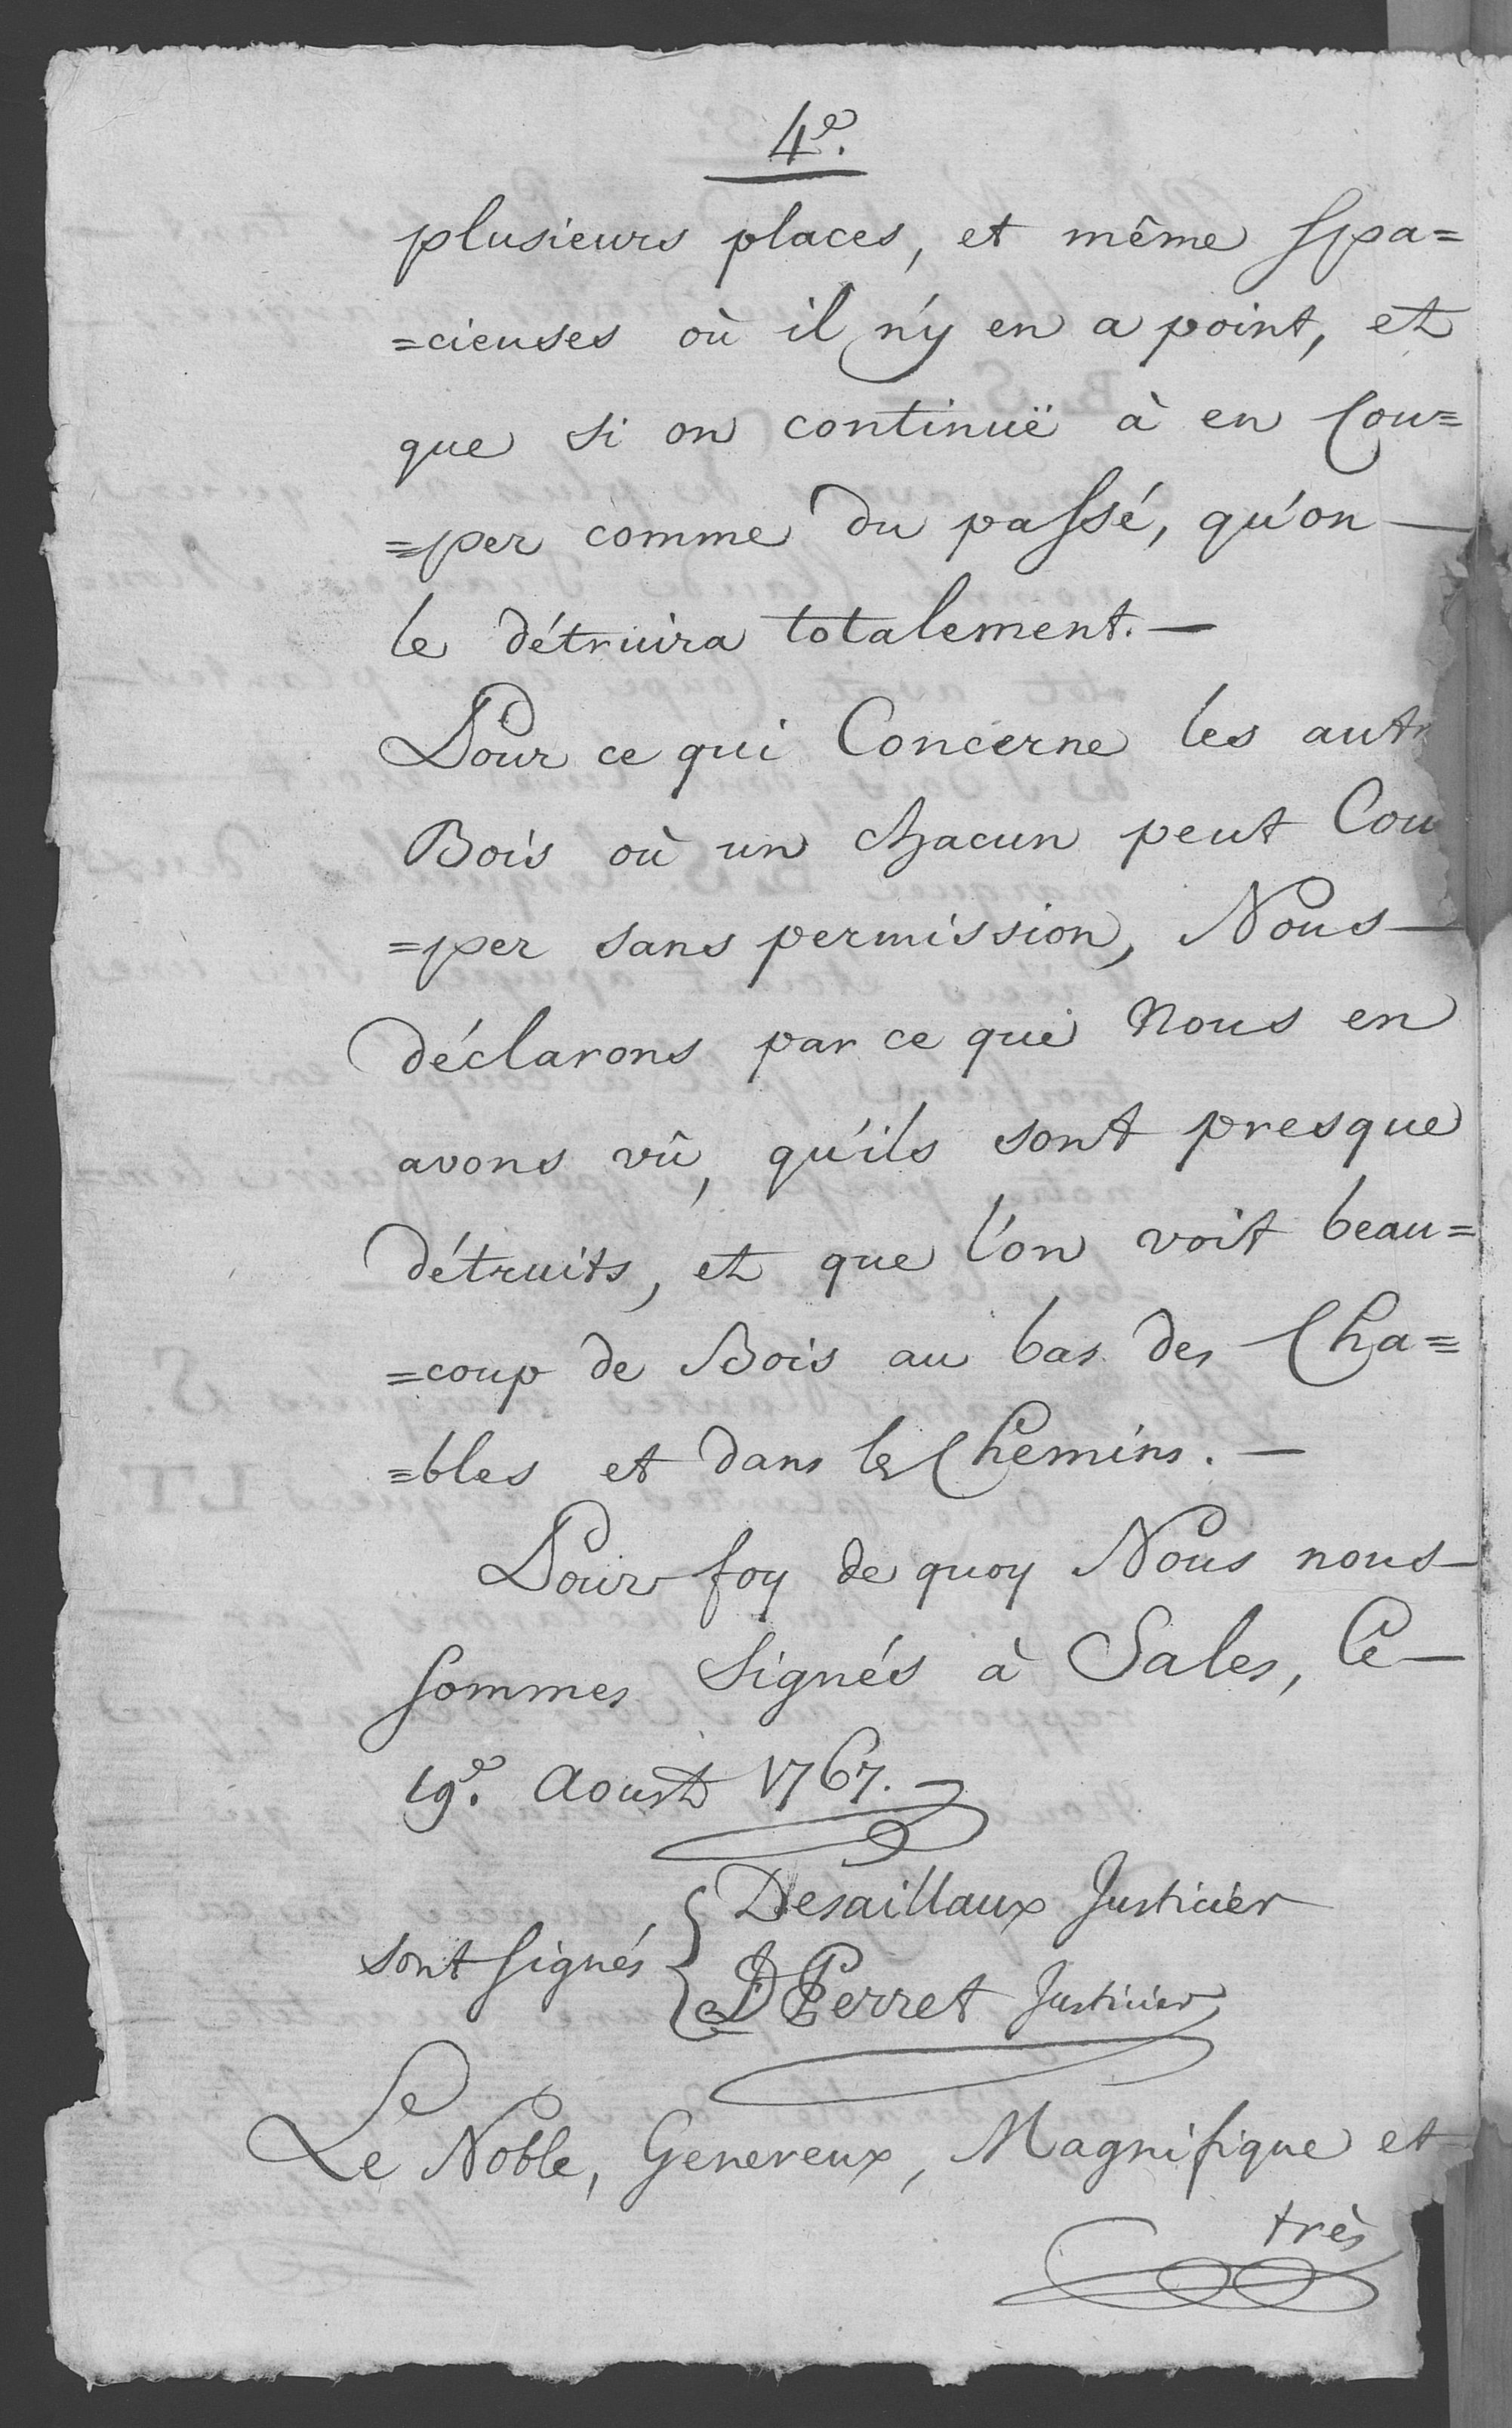 4.e
plusieurs places, et même spa=
=cieuses où il n'y en a point, et
que si on continuë à en Cou=
=per comme du passé, qu'on —
le détruira totalement. —
Pour ce qui Concerne les autr
Bois où un chacun peut Cou
=per sans permission, Nous —
déclarons par ce que nous en
avons vû, qu'ils sont presque
détruits, et que l'on voit beau=
=coup de Bois au bas des Cha=
=bles et dans les Chemins. —
Pour foy de quoy Nous nous —
sommes signés à Sales, Ce —
19.e Aoust 1767. —
sont signés { Desaillaux Justicier
D Perret Justicier
Le Noble, Genereux, Magnifique et
très